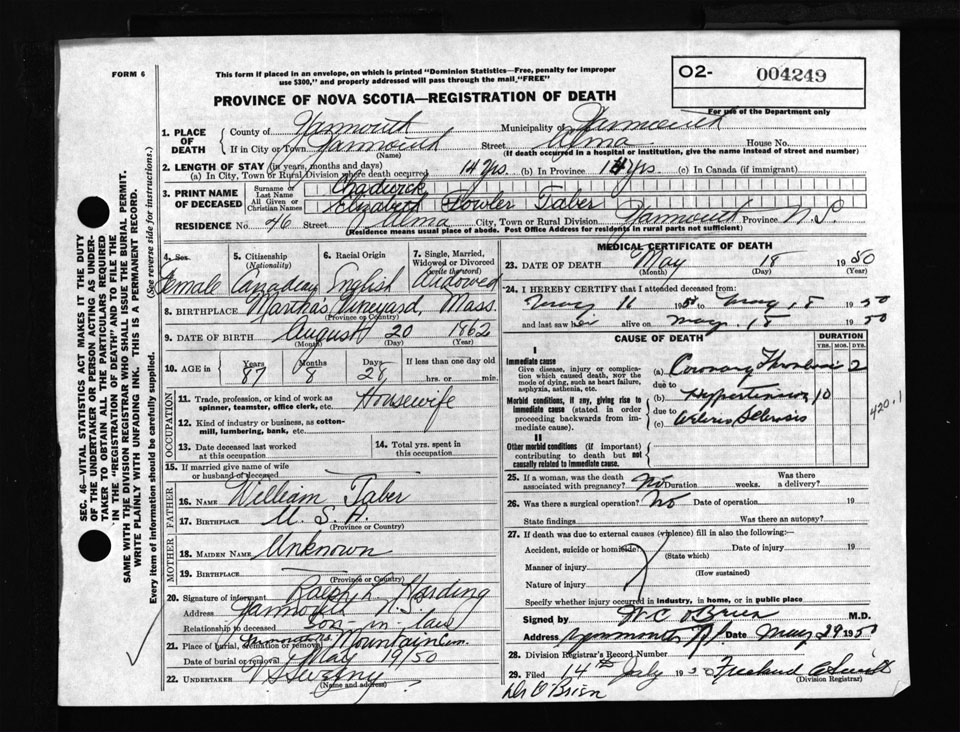 FORM 6
This form if placed in an envelope, on which is printed "Dominion Statistics—Free, penalty for improper
use $300," and properly addressed will pass through the mail "FREE"
PROVINCE OF NOVA SCOTIA—REGISTRATION OF DEATH
O2- 004249
For use of the Department only
1. PLACE OF DEATH
County of Yarmouth Municipality of Yarmouth
If in City or Town Yarmouth Street Alma House No.
(Name) (If death occurred in a hospital or institution, give the name instead of street and number)
2. LENGTH OF STAY (in years, months and days)
(a) In City, Town or Rural Division where death occurred 14 yrs. (b) In Province 14 yrs. (c) In Canada (if immigrant)
3. PRINT NAME OF DECEASED
Surname or Last Name Chadwick
All Given or Christian Names Elizabeth Fowler Taber
RESIDENCE No. 46 Street Alma City, Town or Rural Division Yarmouth Province N.S.
(Residence means usual place of abode. Post Office Address for residents in rural parts not sufficient)
4. Sex Female
5. Citizenship (Nationality) Canadian
6. Racial Origin English
7. Single, Married, Widowed or Divorced (write the word) Widowed
8. BIRTHPLACE Martha's Vineyard, Mass.
(Province or Country)
9. DATE OF BIRTH August 20 1862
(Month) (Day) (Year)
10. AGE in Years 87 Months 8 Days 28 If less than one day old hrs. or min.
OCCUPATION
11. Trade, profession, or kind of work as spinner, teamster, office clerk, etc. Housewife
12. Kind of industry or business, as cotton-mill, lumbering, bank, etc.
13. Date deceased last worked at this occupation
14. Total yrs. spent in this occupation
15. If married give name of wife or husband of deceased
FATHER
16. NAME William Taber
17. BIRTHPLACE U.S.A.
(Province or Country)
MOTHER
18. MAIDEN NAME Unknown
19. BIRTHPLACE
(Province or Country)
20. Signature of informant Ralph L Harding
Address Yarmouth N.S.
Relationship to deceased Son-in-law
21. Place of burial, cremation or removal Mountain Cem.
Date of burial or removal May 19/50
22. UNDERTAKER V S Sweeny
(Name and address)
MEDICAL CERTIFICATE OF DEATH
23. DATE OF DEATH May 18 1950
(Month) (Day) (Year)
24. I HEREBY CERTIFY that I attended deceased from:
May 16 1950 to May 18 1950
and last saw her alive on May 18 1950
CAUSE OF DEATH
DURATION
YRS. MOS. DYS.
I
Immediate cause
Give disease, injury or complication which caused death, NOT the mode of dying, such as heart failure, asphyxia, asthenia, etc.
(a) Coronary Thrombosis 2
due to
Morbid conditions, if any, giving rise to immediate cause (stated in order proceeding backwards from immediate cause).
(b) Hypertension 10
due to
(c) Arterio Sclerosis
420.1
II
Other morbid conditions (if important) contributing to death but not causally related to immediate cause.
25. If a woman, was the death associated with pregnancy? No Duration weeks. Was there a delivery?
26. Was there a surgical operation? No Date of operation 19
State findings Was there an autopsy?
27. If death was due to external causes (violence) fill in also the following:
Accident, suicide or homicide? Date of injury 19
(State which)
Manner of injury
(How sustained)
Nature of injury
Specify whether injury occurred in industry, in home, or in public place
Signed by W.C. O'Brien M.D.
Address Yarmouth N.S. Date May 29 1950
28. Division Registrar's Record Number
29. Filed 14th July 1950
(Division Registrar)
Dr O'Brien
SEC. 46—VITAL STATISTICS ACT MAKES IT THE DUTY
OF THE UNDERTAKER OR PERSON ACTING AS UNDER-
TAKER TO OBTAIN ALL THE PARTICULARS REQUIRED
IN THE "REGISTRATION OF DEATH" AND TO FILE THE
SAME WITH THE DIVISION REGISTRAR WHO SHALL ISSUE THE BURIAL PERMIT.
WRITE PLAINLY WITH UNFADING INK. THIS IS A PERMANENT RECORD.
Every item of information should be carefully supplied. (See reverse side for instructions.)